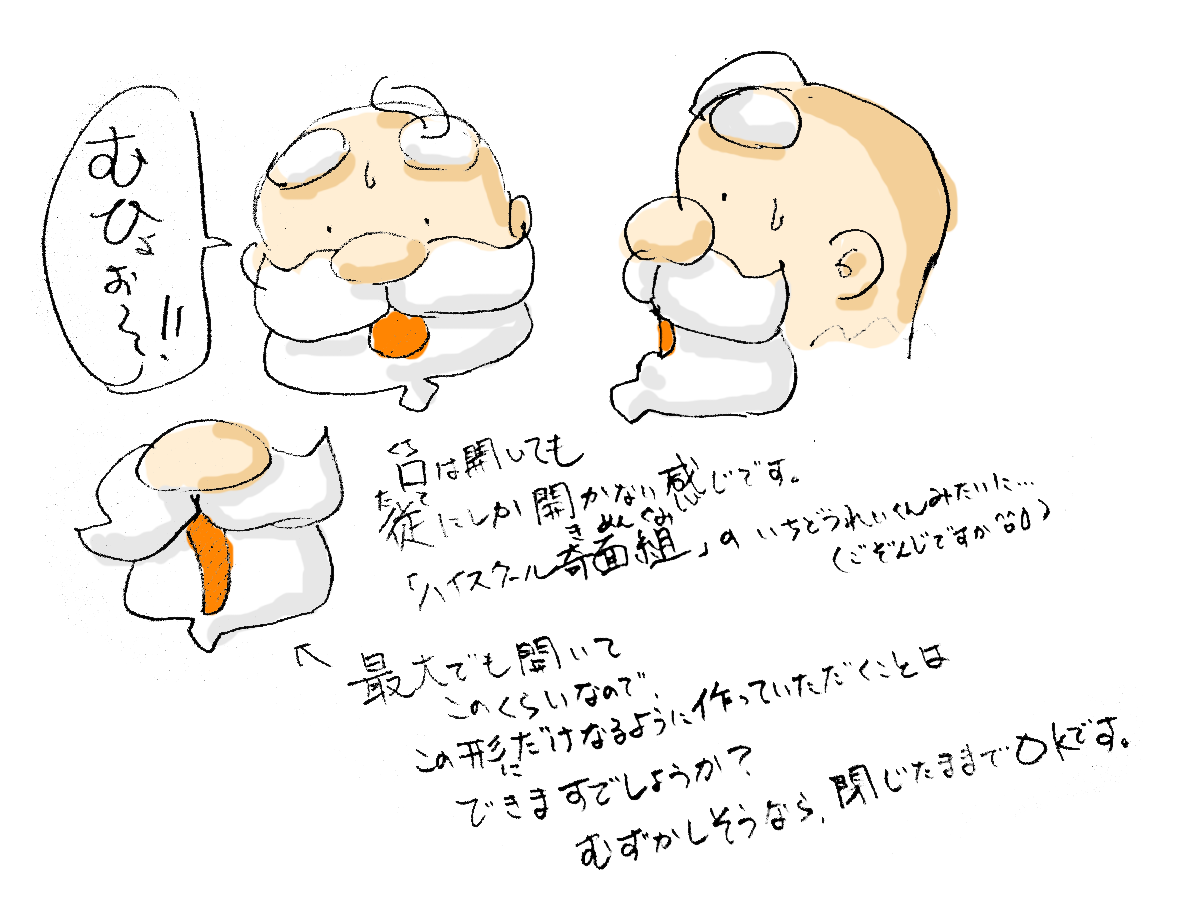 むひょおそ!!
口は開いても
従にしか開かない感じです。
「ハイスクール奇面組」の いちどうれいくんみたいに…
(ごぞんじですか)
最大でも開いて
このくらいなので、
この形にだけなるように作っていただくことは
できますでしょうか?
むずかしそうなら、閉じたままでOKです。